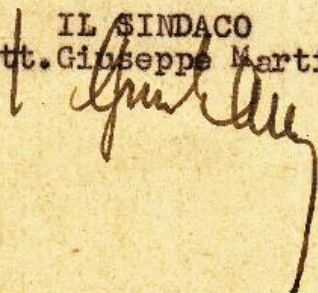 IL SINDACO
tt.Giuseppe Marti